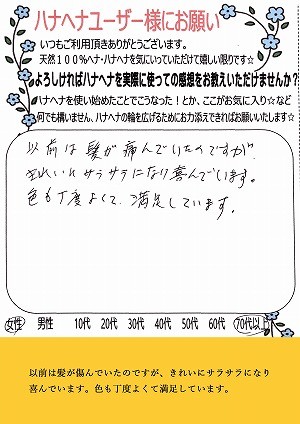 ハナヘナユーザー様にお願い
いつもご利用頂きありがとうございます。
天然100%ヘナ・ハナヘナを気にいっていただけて嬉しい限りです☆
よろしければハナヘナを実際に使っての感想をお教えいただけませんか?
ハナヘナを使い始めたことでこうなった!とか、ここがお気に入り☆など
何でも構いません、ハナヘナの輪を広げるためにお力添えできればお願いいたします☆
以前は髪が痛んでいたのですが、
きれいにサラサラになり喜んでいます。
色も丁度よくて、満足しています。
女性 男性 10代 20代 30代 40代 50代 60代 70代以上
以前は髪が傷んでいたのですが、きれいにサラサラになり
喜んでいます。色も丁度よくて満足しています。